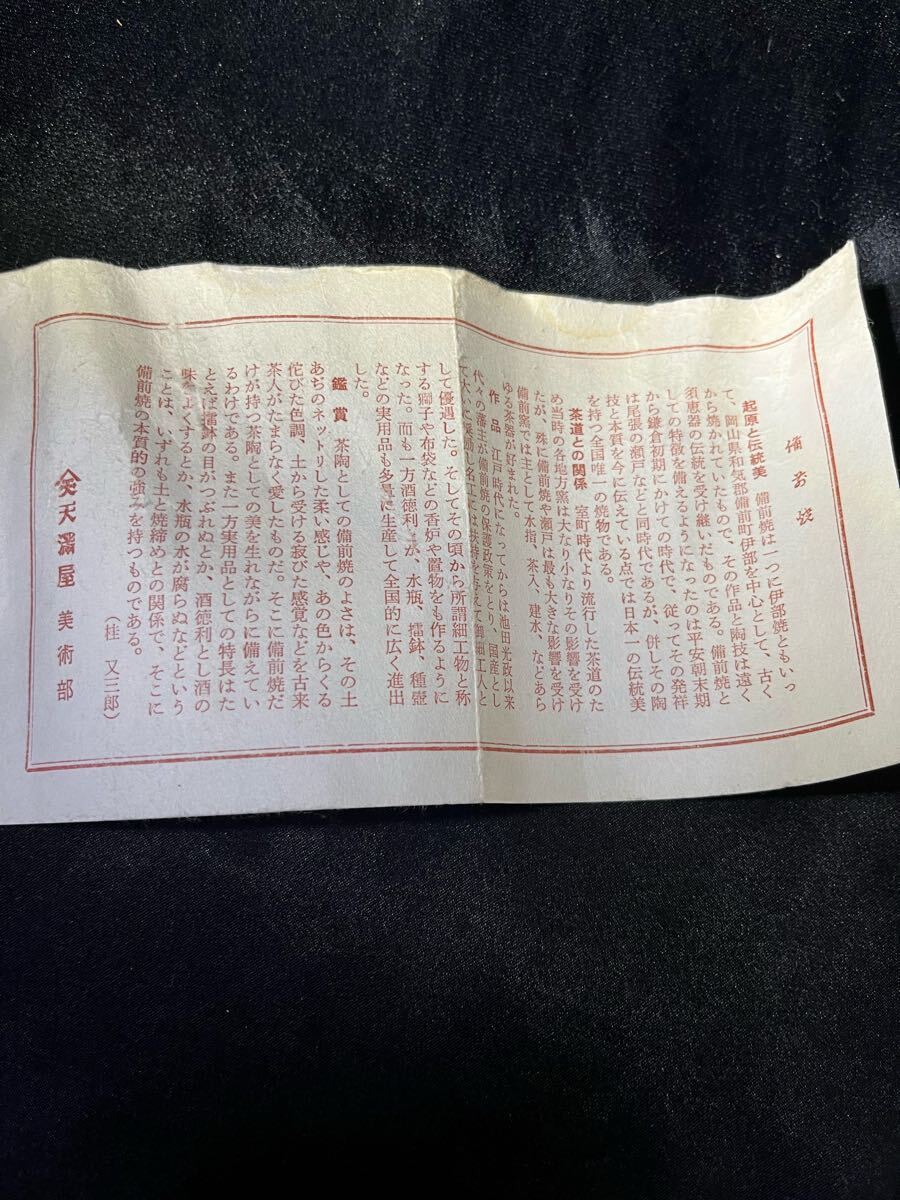 備前焼
起原と伝統美　備前焼は一つに伊部焼ともいっ
て、岡山県和気郡備前町伊部を中心として、古く
から焼かれていたもので、その作品と陶技は遠く
須恵器の伝統を受け継いだものである。備前焼と
しての特徴を備えるようになったのは平安朝末期
から鎌倉初期にかけての時代で、従ってその発祥
は尾張の瀬戸などと同時代であるが、併しその陶
技と本質を今に伝えている点では日本一の伝統美
を持つ全国唯一の焼物である。
茶道との関係　室町時代より流行した茶道のた
め当時の各地方窯は大なり小なりその影響を受け
たが、殊に備前焼や瀬戸は最も大きな影響を受け
備前窯では主として水指、茶入、建水、などあら
ゆる茶器が好まれた。
作品　江戸時代になってからは池田光政以来
代々の藩主が備前焼の保護政策をとり、国産とし
て大いに奨励し名工には扶持を与えて御細工人と
して優遇した。そしてその頃から所謂細工物と称
する獅子や布袋などの香炉や置物をも作るように
なった。而も一方酒徳利、水瓶、擂鉢、種壺
などの実用品も多量に生産して全国的に広く進出
した。
鑑賞　茶陶としての備前焼のよさは、その土
あぢのネットリした柔い感じや、あの色からくる
侘びた色調、土から受ける寂びた感覚などを古来
茶人がたまらなく愛したものだ。そこに備前焼だ
けが持つ茶陶としての美を生れながらに備えてい
るわけである。また一方実用品としての特長はた
とえば擂鉢の目がつぶれぬとか、酒徳利とし酒の
味をよくするとか、水瓶の水が腐らぬなどという
ことは、いずれも土と焼締めとの関係で、そこに
備前焼の本質的の強みを持つものである。
（桂　又三郎）
天満屋　美術部